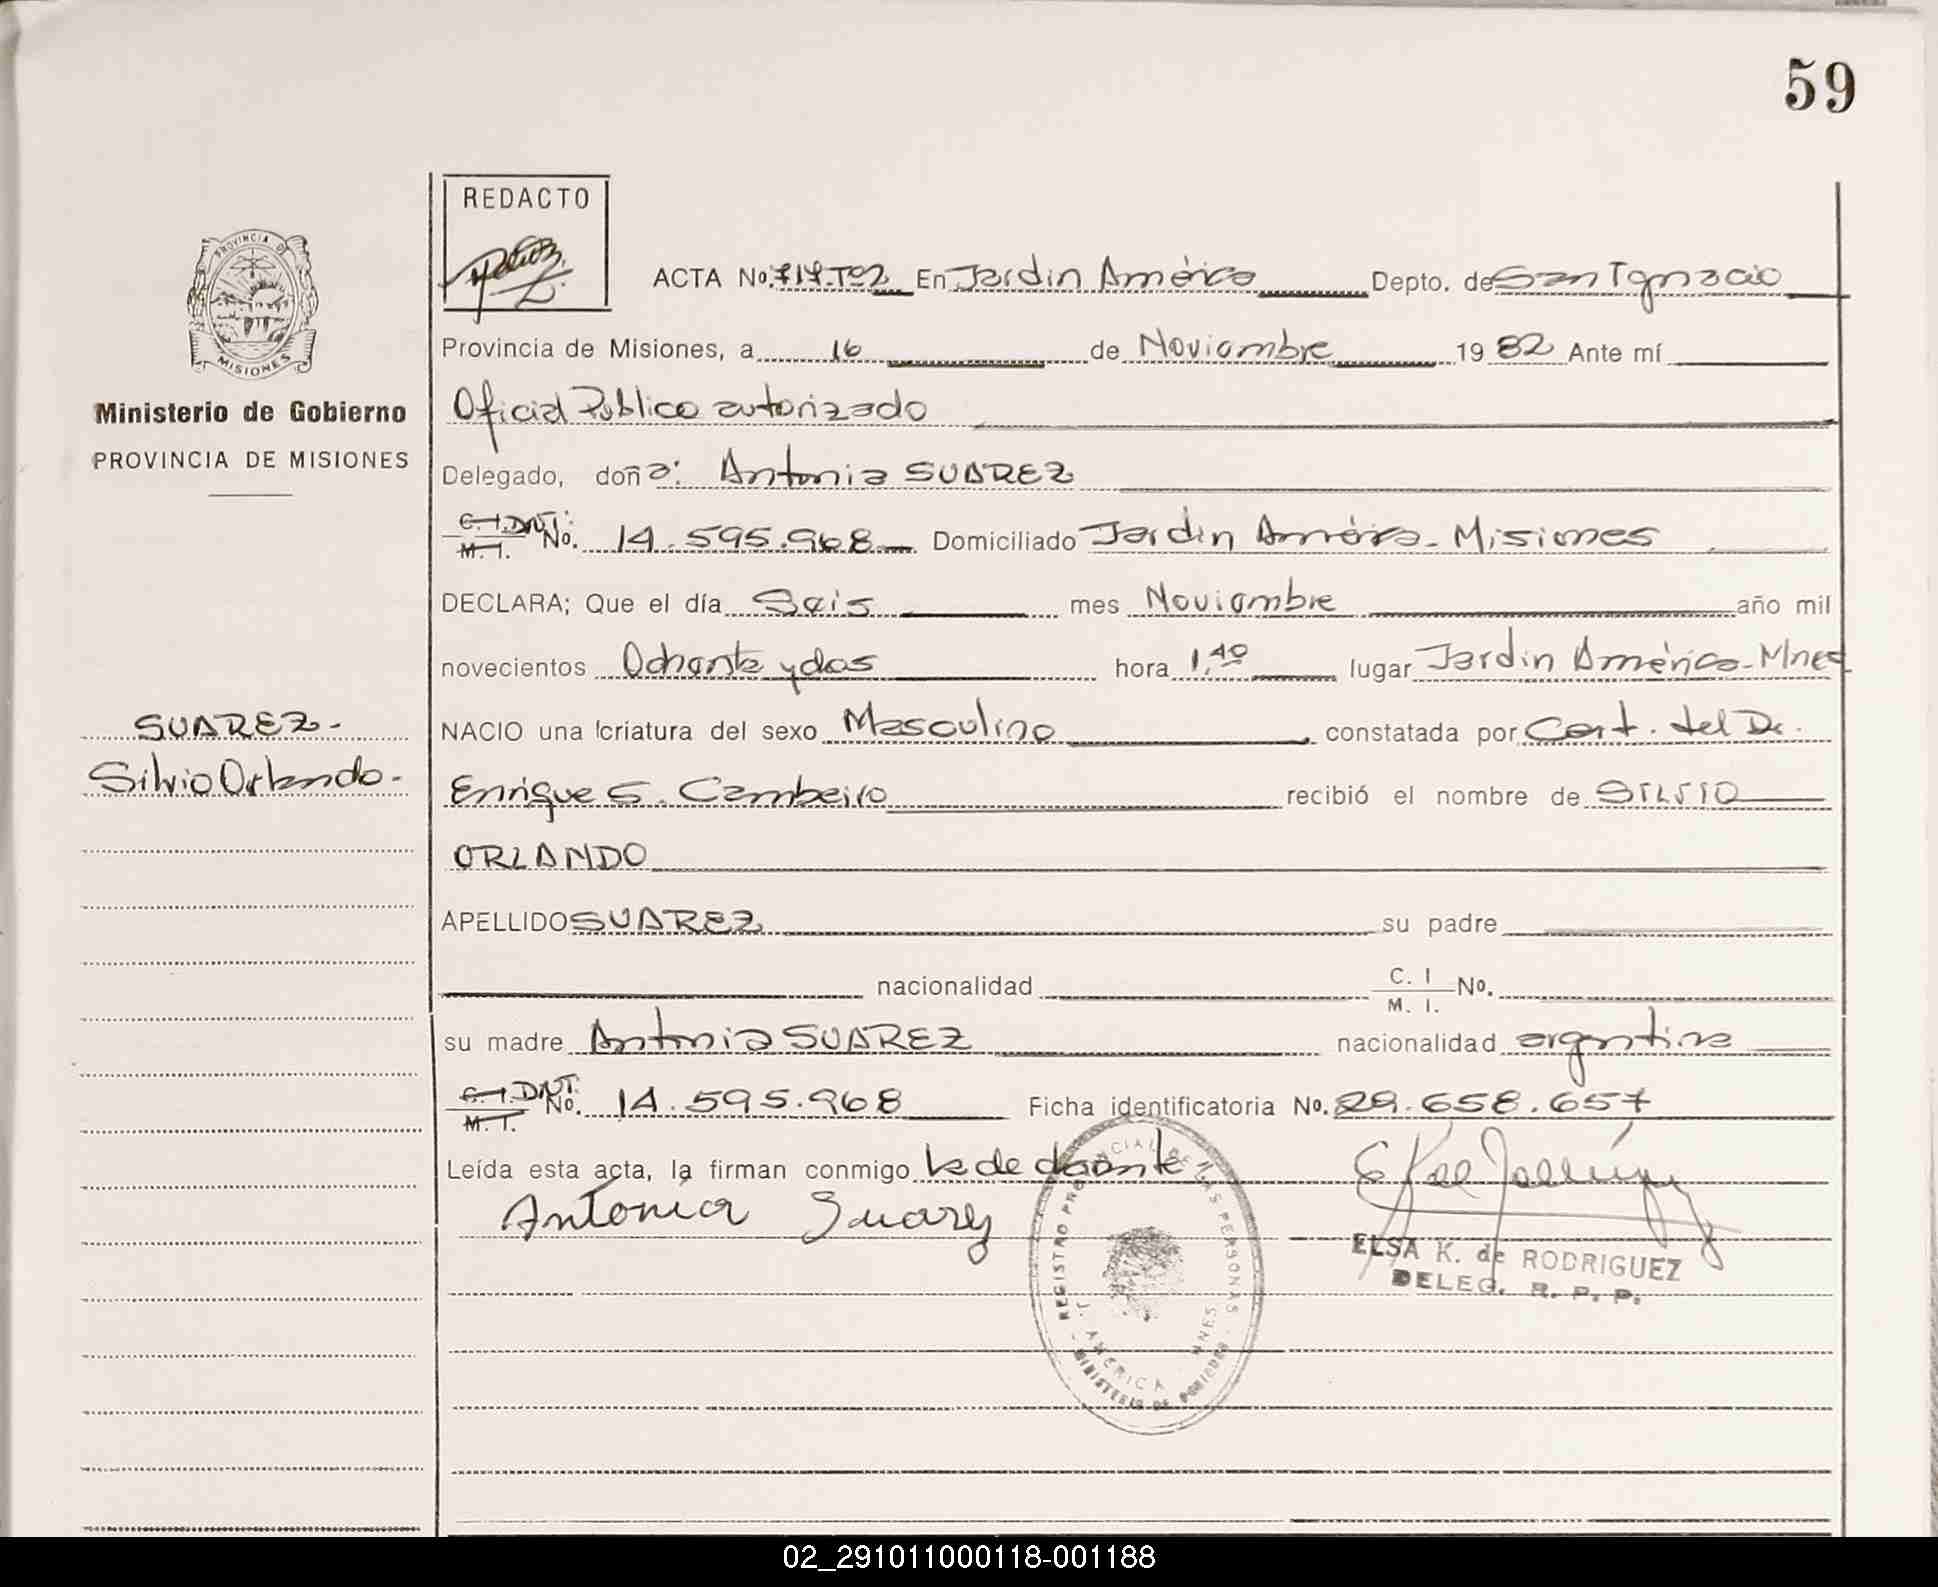 59
REDACTO
ACTA No. 717.Tº2 En Jardin América Depto. de San Ignacio
PROVINCIA DE
MISIONES
Provincia de Misiones, a 16 de Noviembre 1982 Ante mí
Ministerio de Gobierno
Oficial Público autorizado
PROVINCIA DE MISIONES
Delegado, doña: Antonia SUAREZ
C.I. DNI. M.I. No. 14.595.968 Domiciliado Jardin América - Misiones
DECLARA; Que el día Seis mes Noviembre año mil
novecientos Ochenta y dos hora 1,40 lugar Jardin América - Mnes
SUAREZ -
NACIO una criatura del sexo Masculino constatada por Cert. del Dr.
Silvio Orlando -
Enrique S. Cambeiro recibió el nombre de SILVIO
ORLANDO
APELLIDO SUAREZ su padre
nacionalidad C. I M. I. No.
su madre Antonia SUAREZ nacionalidad argentina
C.I. DNI. M.I. No. 14.595.968 Ficha identificatoria No. 29.658.657
Leída esta acta, la firman conmigo la declarante
Antonia Suarez
ELSA K. de RODRIGUEZ
DELEG. R. P. P.
REGISTRO PROVINCIAL DE LAS PERSONAS
J. AMERICA MNES
MINISTERIO DE GOBIERNO
02_291011000118-001188